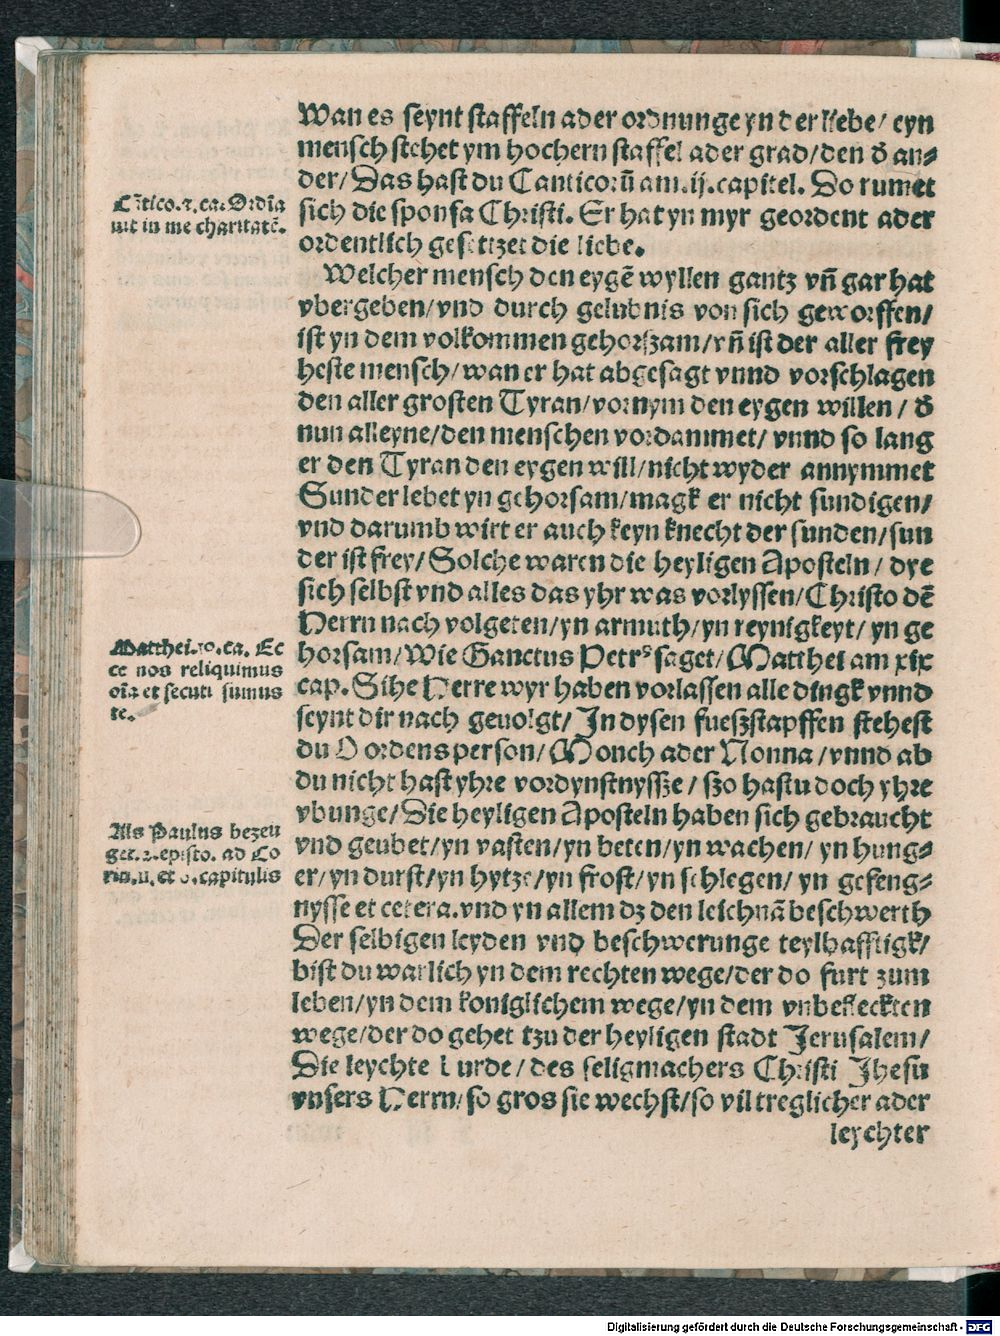 Wan es seynt staffeln ader ordnunge yn der liebe/ eyn
mensch stehet ym hochern staffel ader grad/den d̕ an⸗
der/ Das hast du Canticorū am.ij.capitel. Do rumet
sich die sponsa Christi. Er hat yn myr geordent ader
ordentlich gesetzet die liebe.
Cātico.2.ca. Ordīa
uit in me charitatē.
Welcher mensch den eygē wyllen gantz vñ gar hat
vbergeben/vnd durch gelubnis von sich geworffen/
ist yn dem volkommen gehorszam/vñ ist der aller frey
heste mensch/wan er hat abgesagt vnnd vorschlagen
den aller grosten Tyran/vornym den eygen willen / d̕
nun alleyne/den menschen vordammet/ vnnd so lang
er den Tyran den eygen will/nicht wyder annymmet
Sunder lebet yn gehorsam/magk er nicht sundigen/
vnd darumb wirt er auch keyn knecht der sunden/sun
der ist frey/ Solche waren die heyligen Aposteln / dye
sich selbst vnd alles das yhr was vorlyssen/Christo dē
Herrn nach volgeten/yn armuth/yn reynigkeyt/ yn ge
horsam/Wie Sanctus Petrꝰ saget/Matthei am xix
cap. Sihe Herre wyr haben vorlassen alle dingk vnnd
seynt dir nach geuolgt/ In dysen fueszstapffen stehest
du O ordens person/Monch ader Nonna /vnnd ab
du nicht hast yhre vordynstnysße / szo hastu doch yhre
vbunge/ Die heyligen Aposteln haben sich gebraucht
vnd geubet/yn vasten/yn beten/yn wachen/ yn hung⸗
er/yn durst/yn hytze/yn frost/yn schlegen/ yn gefeng⸗
nysse et cetera.vnd yn allem dz den leichnā beschwerth
Matthei.19.ca. Ec
ce nos reliquimus
oīa et secuti sumus
te.
Als Paulus bezeu
get.2.episto. ad Co
rin. et .capitulis
Der selbigen leyden vnd beschwerunge teylhafftigk/
bist du warlich yn dem rechten wege/der do furt zum
leben/yn dem koniglichem wege/yn dem vnbefleckten
wege/der do gehet tzu der heyligen stadt Jerusalem/
Die leychte burde/des seligmachers Christi Jhesu
vnsers Herrn/so gros sie wechst/so vil treglicher ader
leychter
Digitalisierung gefördert durch die Deutsche Forschungsgemeinschaft - DFG